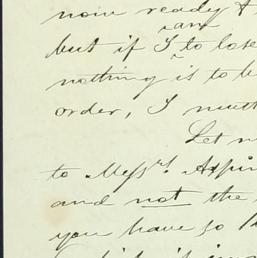 now ready &
but if I am to lose
nothing is to b
order, I must
Let m
to Messrs. Aspin
and not the
you have so